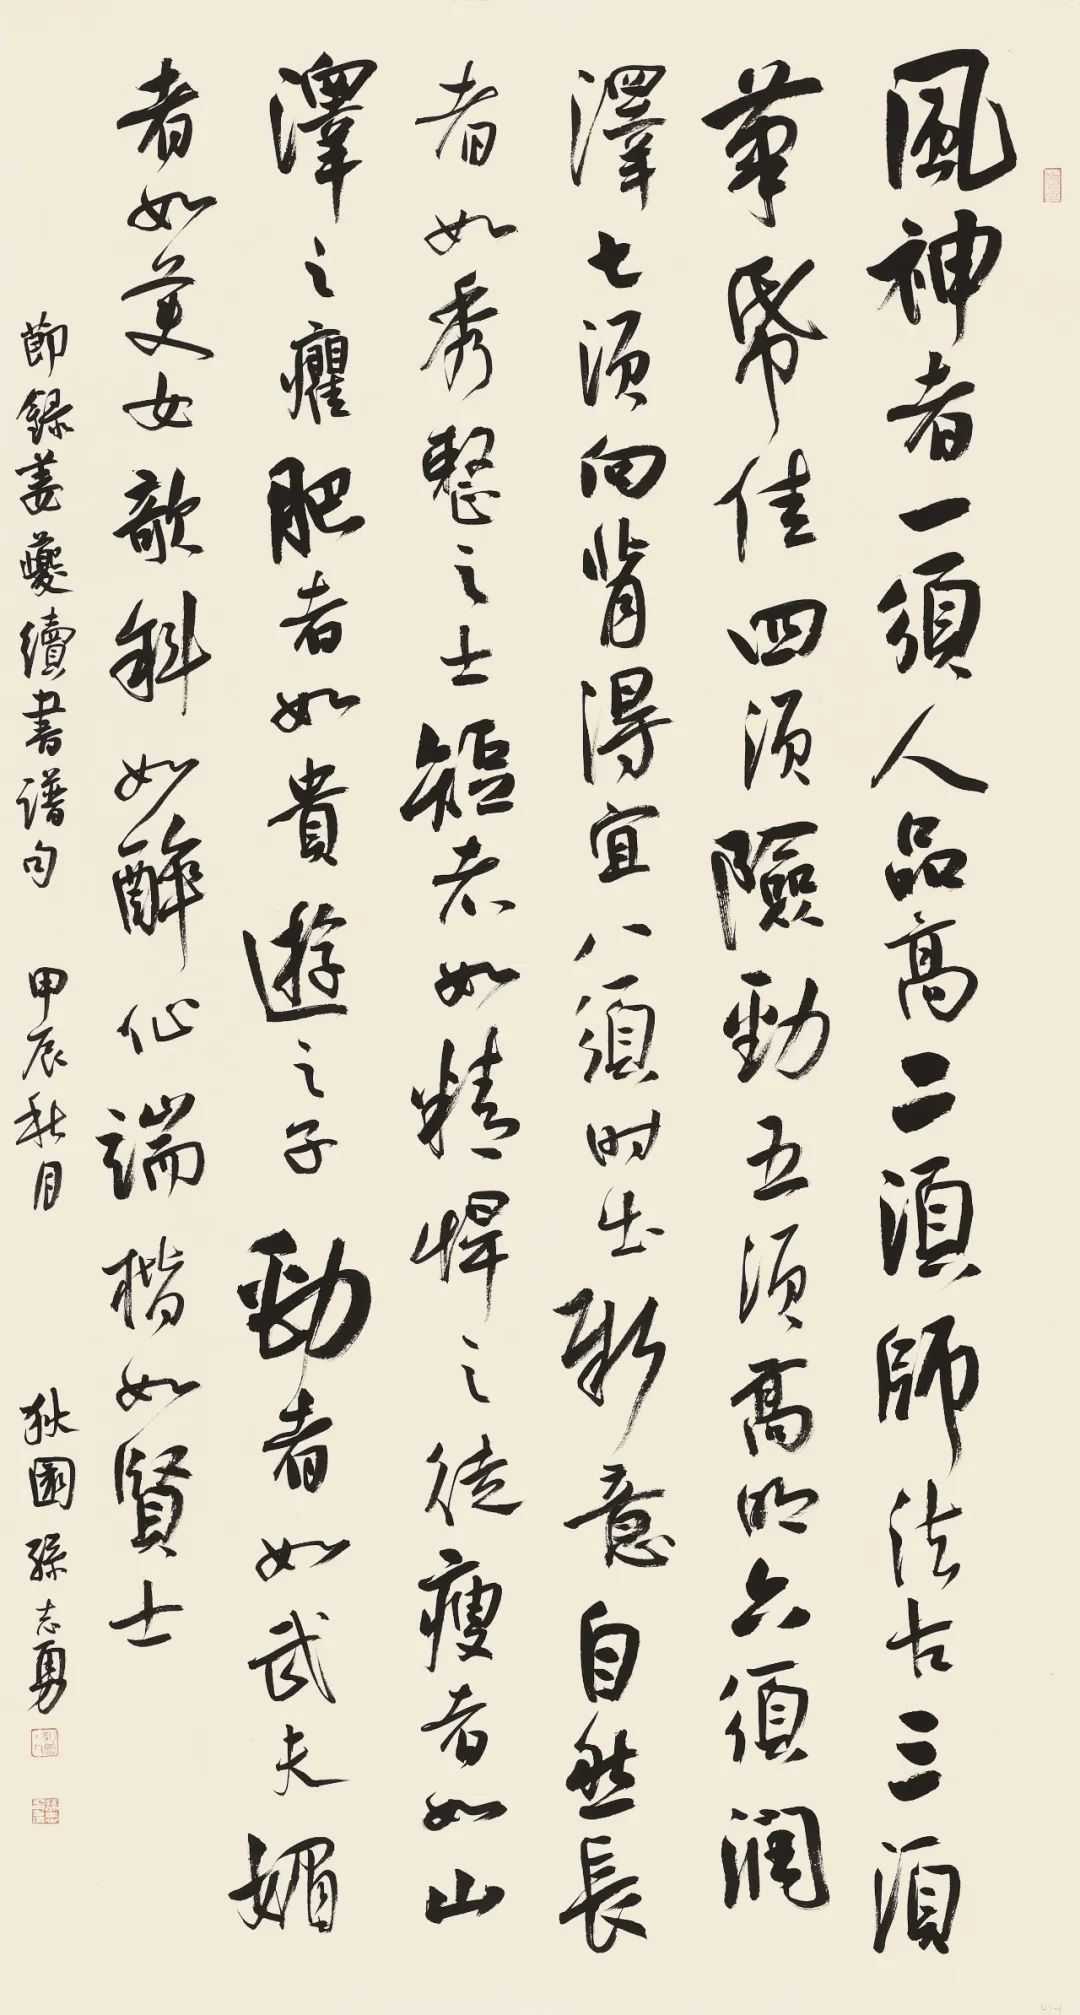 風神者一須人品高二須師法古三須
筆帋佳四須險勁五須高明六須潤
澤七須向背得宜八須時出新意自然長
者如秀整之士短者如精悍之徒瘦者如山
澤之癯肥者如貴遊之子勁者如武夫媚
者如美女欹斜如醉仙端楷如賢士
節錄姜夔續書譜句 甲辰秋月 狄園孫志勇